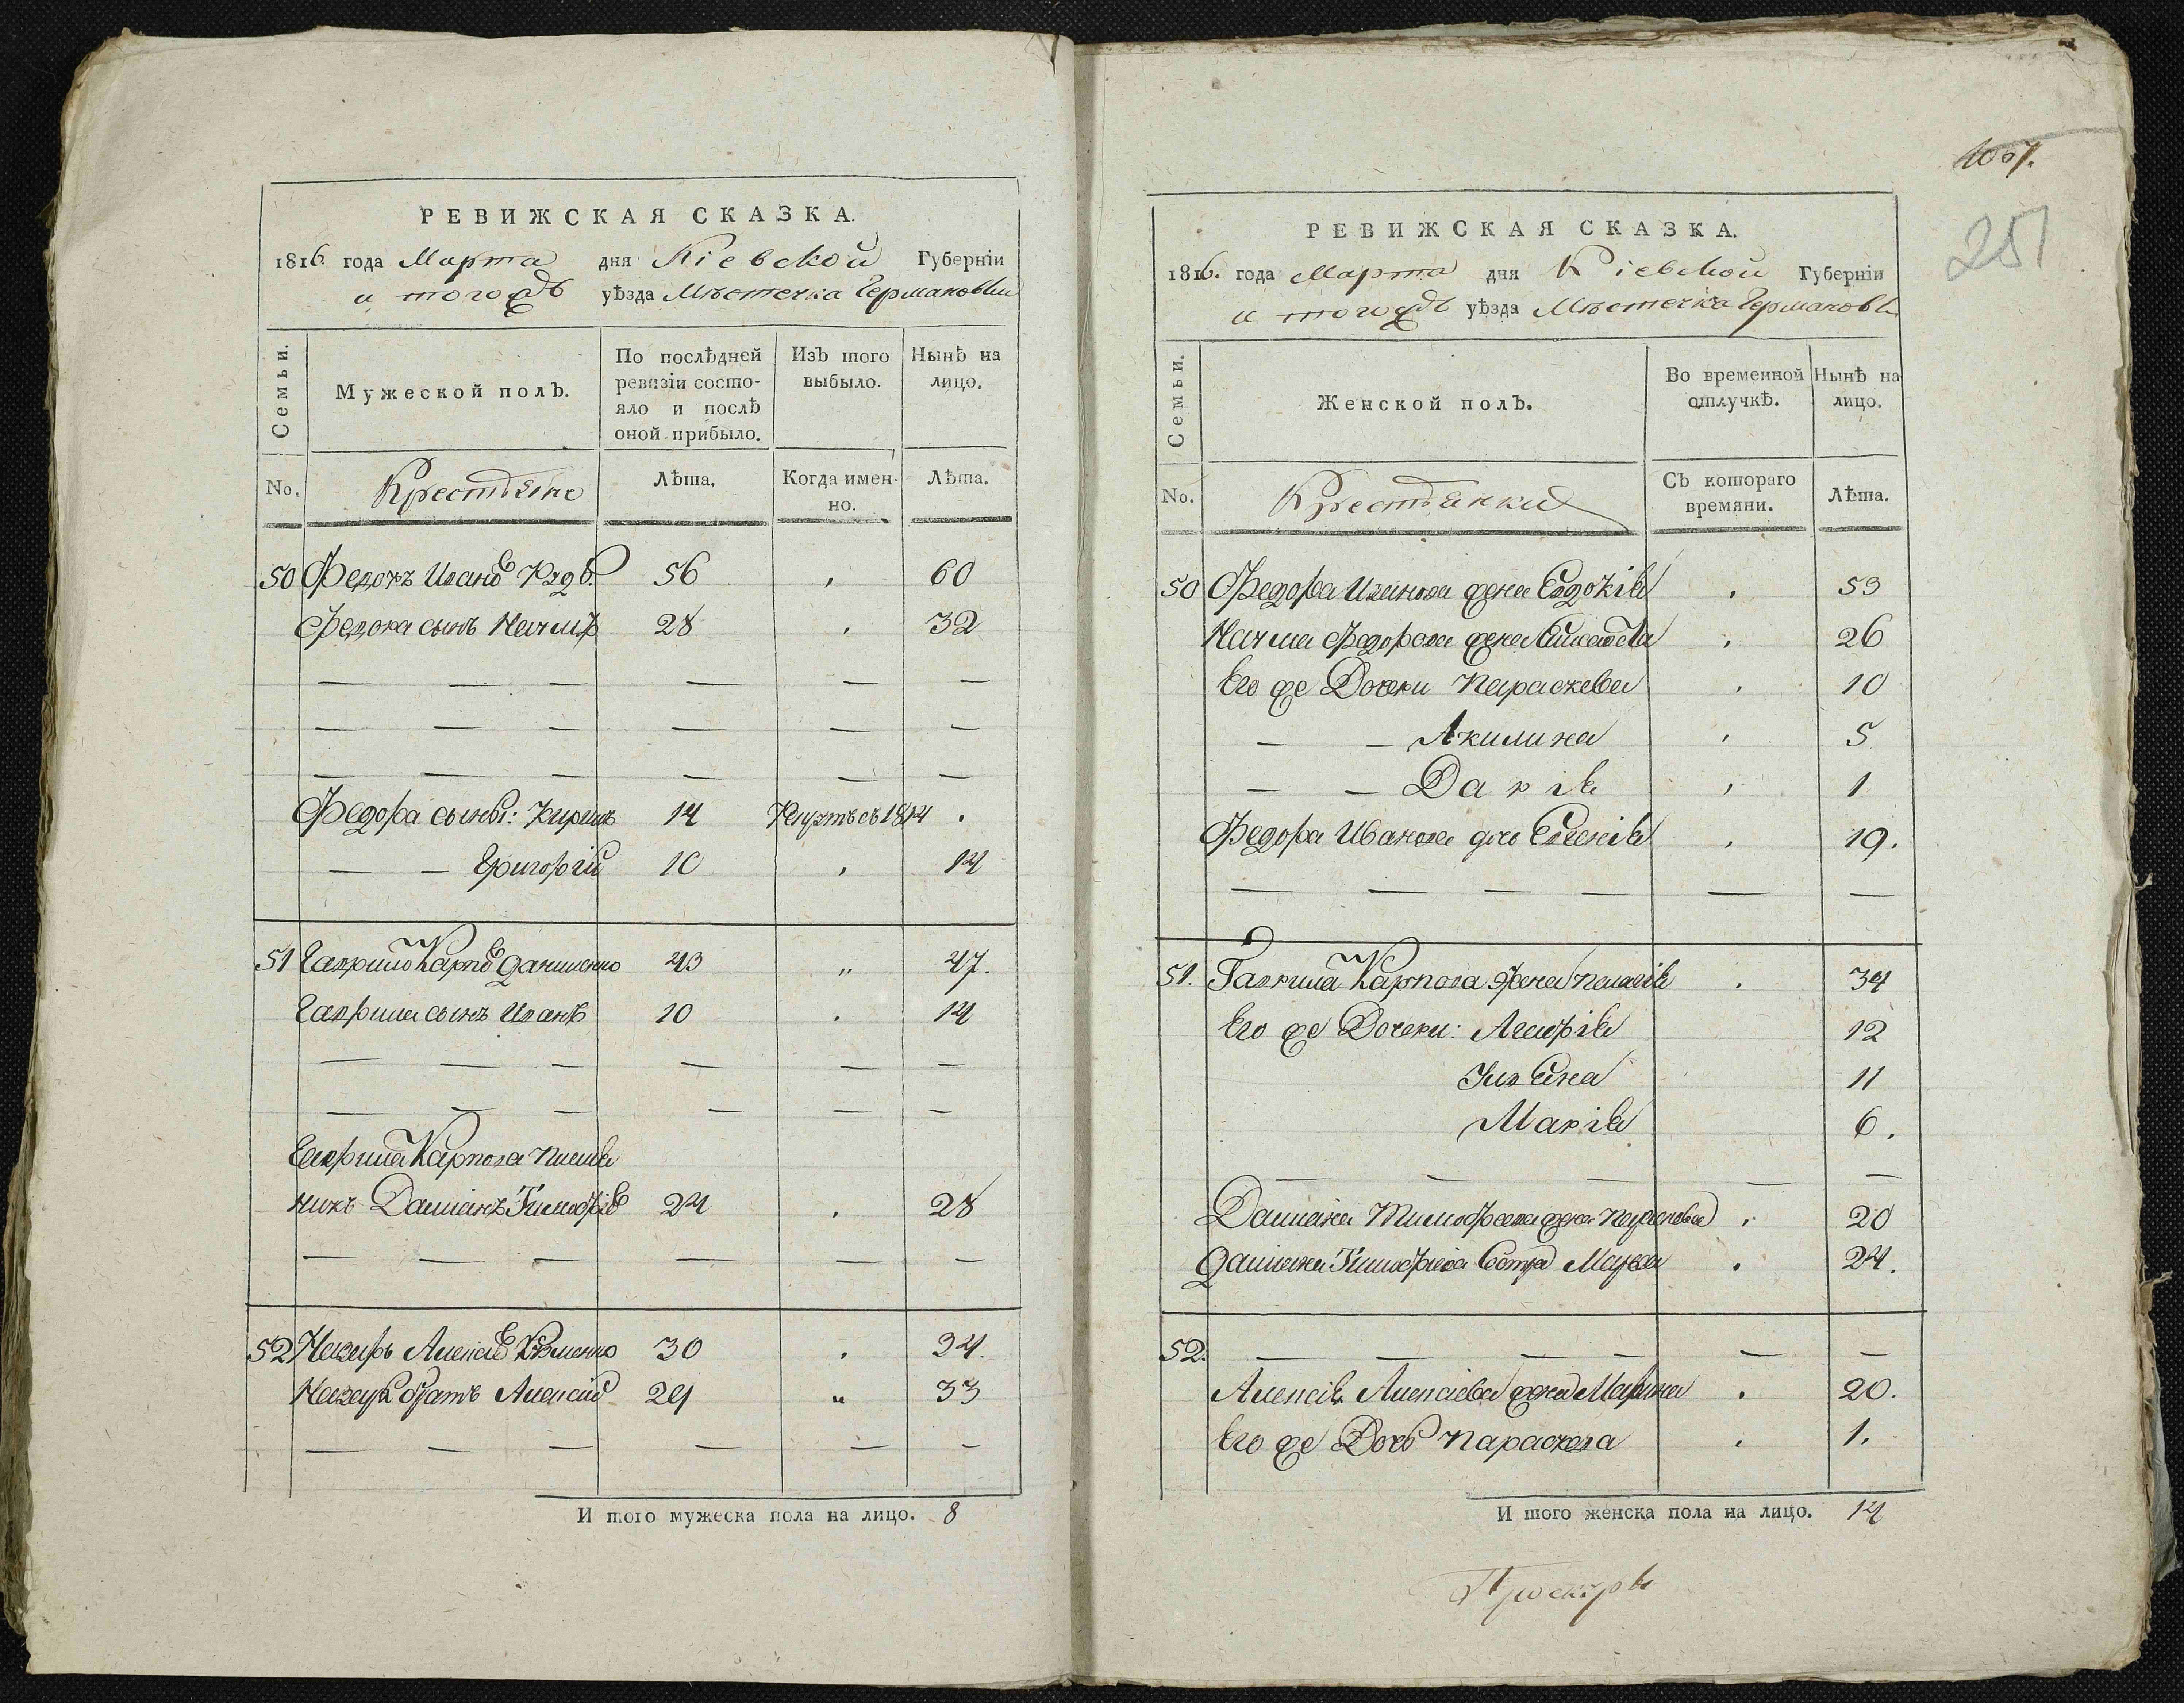 РЕВИЖСКАЯ СКАЗКА.
1816 года Марта дня Кіевской Губерніи
и тогождъ уѣзда Мѣстечка Германовки
Семьи.
Мужеской полЪ.
По послѣдней ревизіи состо-яло и послѣ оной прибыло.
ИзЪ того выбыло.
НынѢ на лицо.
No.
Крестьяне
ЛѢта.
Когда имен-но.
ЛѢта.
50 Федоръ Иванов 56 , 60
Федора сынъ Наумъ 28 , 32
Федора сыны: Кирилъ 14 съ 1814 .
— — Григорій 10 , 14
51 Гаврило Карпов Даниленко 43 „ 47.
Гаврила сынъ Иванъ 10 , 14
Гаврила Карпова племя
никъ Даміанъ Тимофѣев 24 , 28
52 Назаръ Алексѣев 30 , 34.
Назара братъ Алексій 29 „ 33
И того мужеска пола на лицо. 8
1007.
251
РЕВИЖСКАЯ СКАЗКА.
1816. года Марта дня Кіевской Губерніи
и тогождъ уѣзда Мѣстечка Германовки
Семьи.
Женской полЪ.
Во временной отлучкѢ.
НынѢ на лицо.
No.
Крестьянки
СЪ котораго времяни.
ЛѢта.
50 Федора Иванова жена Евдокія , 53
Наума Федорова жена , 26
Его же Дочери Параскева , 10
— — Акилина , 5
— — Дарія , 1
Федора Иванова дчь Евгенія , 19.
51. Гаврила Карпова жена Пелагія , 34
Его же Дочери: Агафія 12
Ульяна 11
Марія 6.
Даміана Тимофеева жена Параскева , 20
Даміана Тимофѣева Сестра Марфа , 24.
52.
Алексія Алексіева жена Марина , 20.
Его же Дочь Параскева , 1.
И того женска пола на лицо. 14